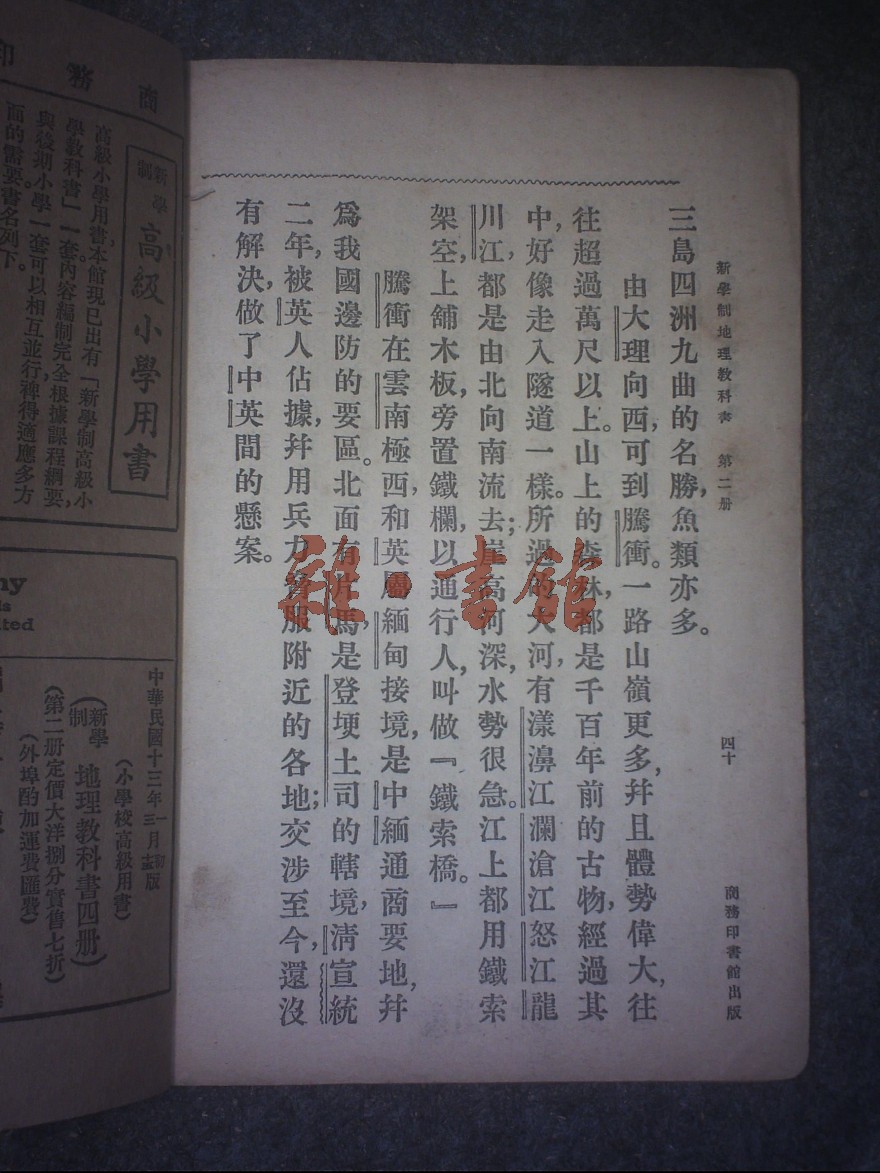 新學制地理教科書　第二册
四十
商務印書館出版
三島四洲九曲的名勝，魚類亦多。
由大理向西，可到騰衝。一路山嶺更多，幷且體勢偉大，往
往超過萬尺以上。山上的森林，都是千百年前的古物，經過其
中，好像走入隧道一樣。所過的大河，有漾濞江瀾滄江怒江龍
川江，都是由北向南流去；崖高河深，水勢很急。江上都用鐵索
架空，上舖木板，旁置鐵欄，以通行人，叫做『鐵索橋。』
騰衝在雲南極西，和英屬緬甸接境，是中緬通商要地，幷
爲我國邊防的要區。北面有片馬，是登埂土司的轄境，淸宣統
二年，被英人佔據，幷用兵力脅服附近的各地；交涉至今，還沒
有解決，做了中英間的懸案。
雜·書館
商務印
新學制 高級小學用書
高級小學用書，本館現已出有「新學制高級小
學教科書」一套，內容編制完全根據課程綱要，
與後期小學一套可以相互並行，裨得適應多方
面的需要。書名列下。
中華民國十三年一月初版
（小學校高級用書）
（新學制 地理教科書四册）
（第二册定價大洋捌分實售七折）
（外埠酌加運費匯費）